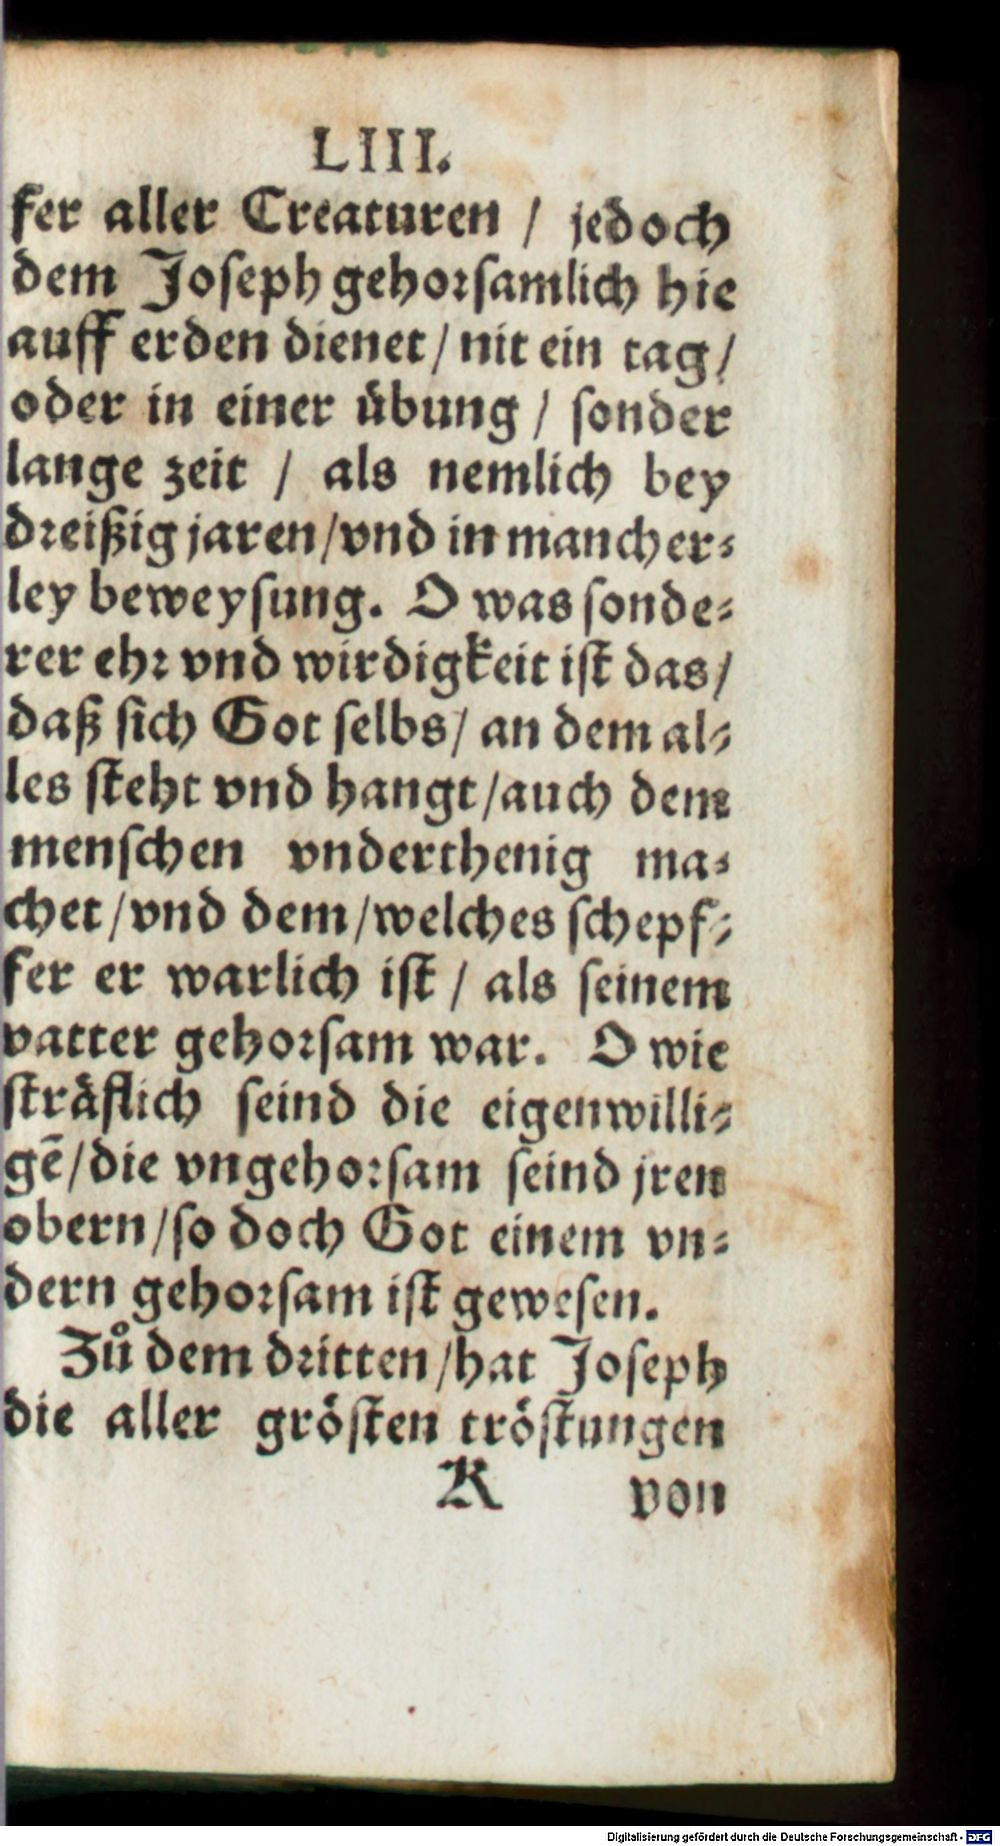 LIII.
fer aller Creaturen / jedoch
dem Joseph gehorsamlich hie
auff erden dienet / nit ein tag /
oder in einer übung / sonder
lange zeit / als nemlich bey
dreißig jaren / vnd in mancher⸗
ley beweysung. O was sonde⸗
rer ehr vnd wirdigkeit ist das /
daß sich Got selbs / an dem al⸗
les steht vnd hangt / auch dem
menschen vnderthenig ma⸗
chet / vnd dem / welches schepf⸗
fer er warlich ist / als seinem
vatter gehorsam war. O wie
sträflich seind die eigenwilli⸗
gẽ / die vngehorsam seind jren
obern / so doch Got einem vn⸗
dern gehorsam ist gewesen.
Zů dem dritten / hat Joseph
die aller grösten tröstungen
K von
Digitalisierung gefördert durch die Deutsche Forschungsgemeinschaft - DFG